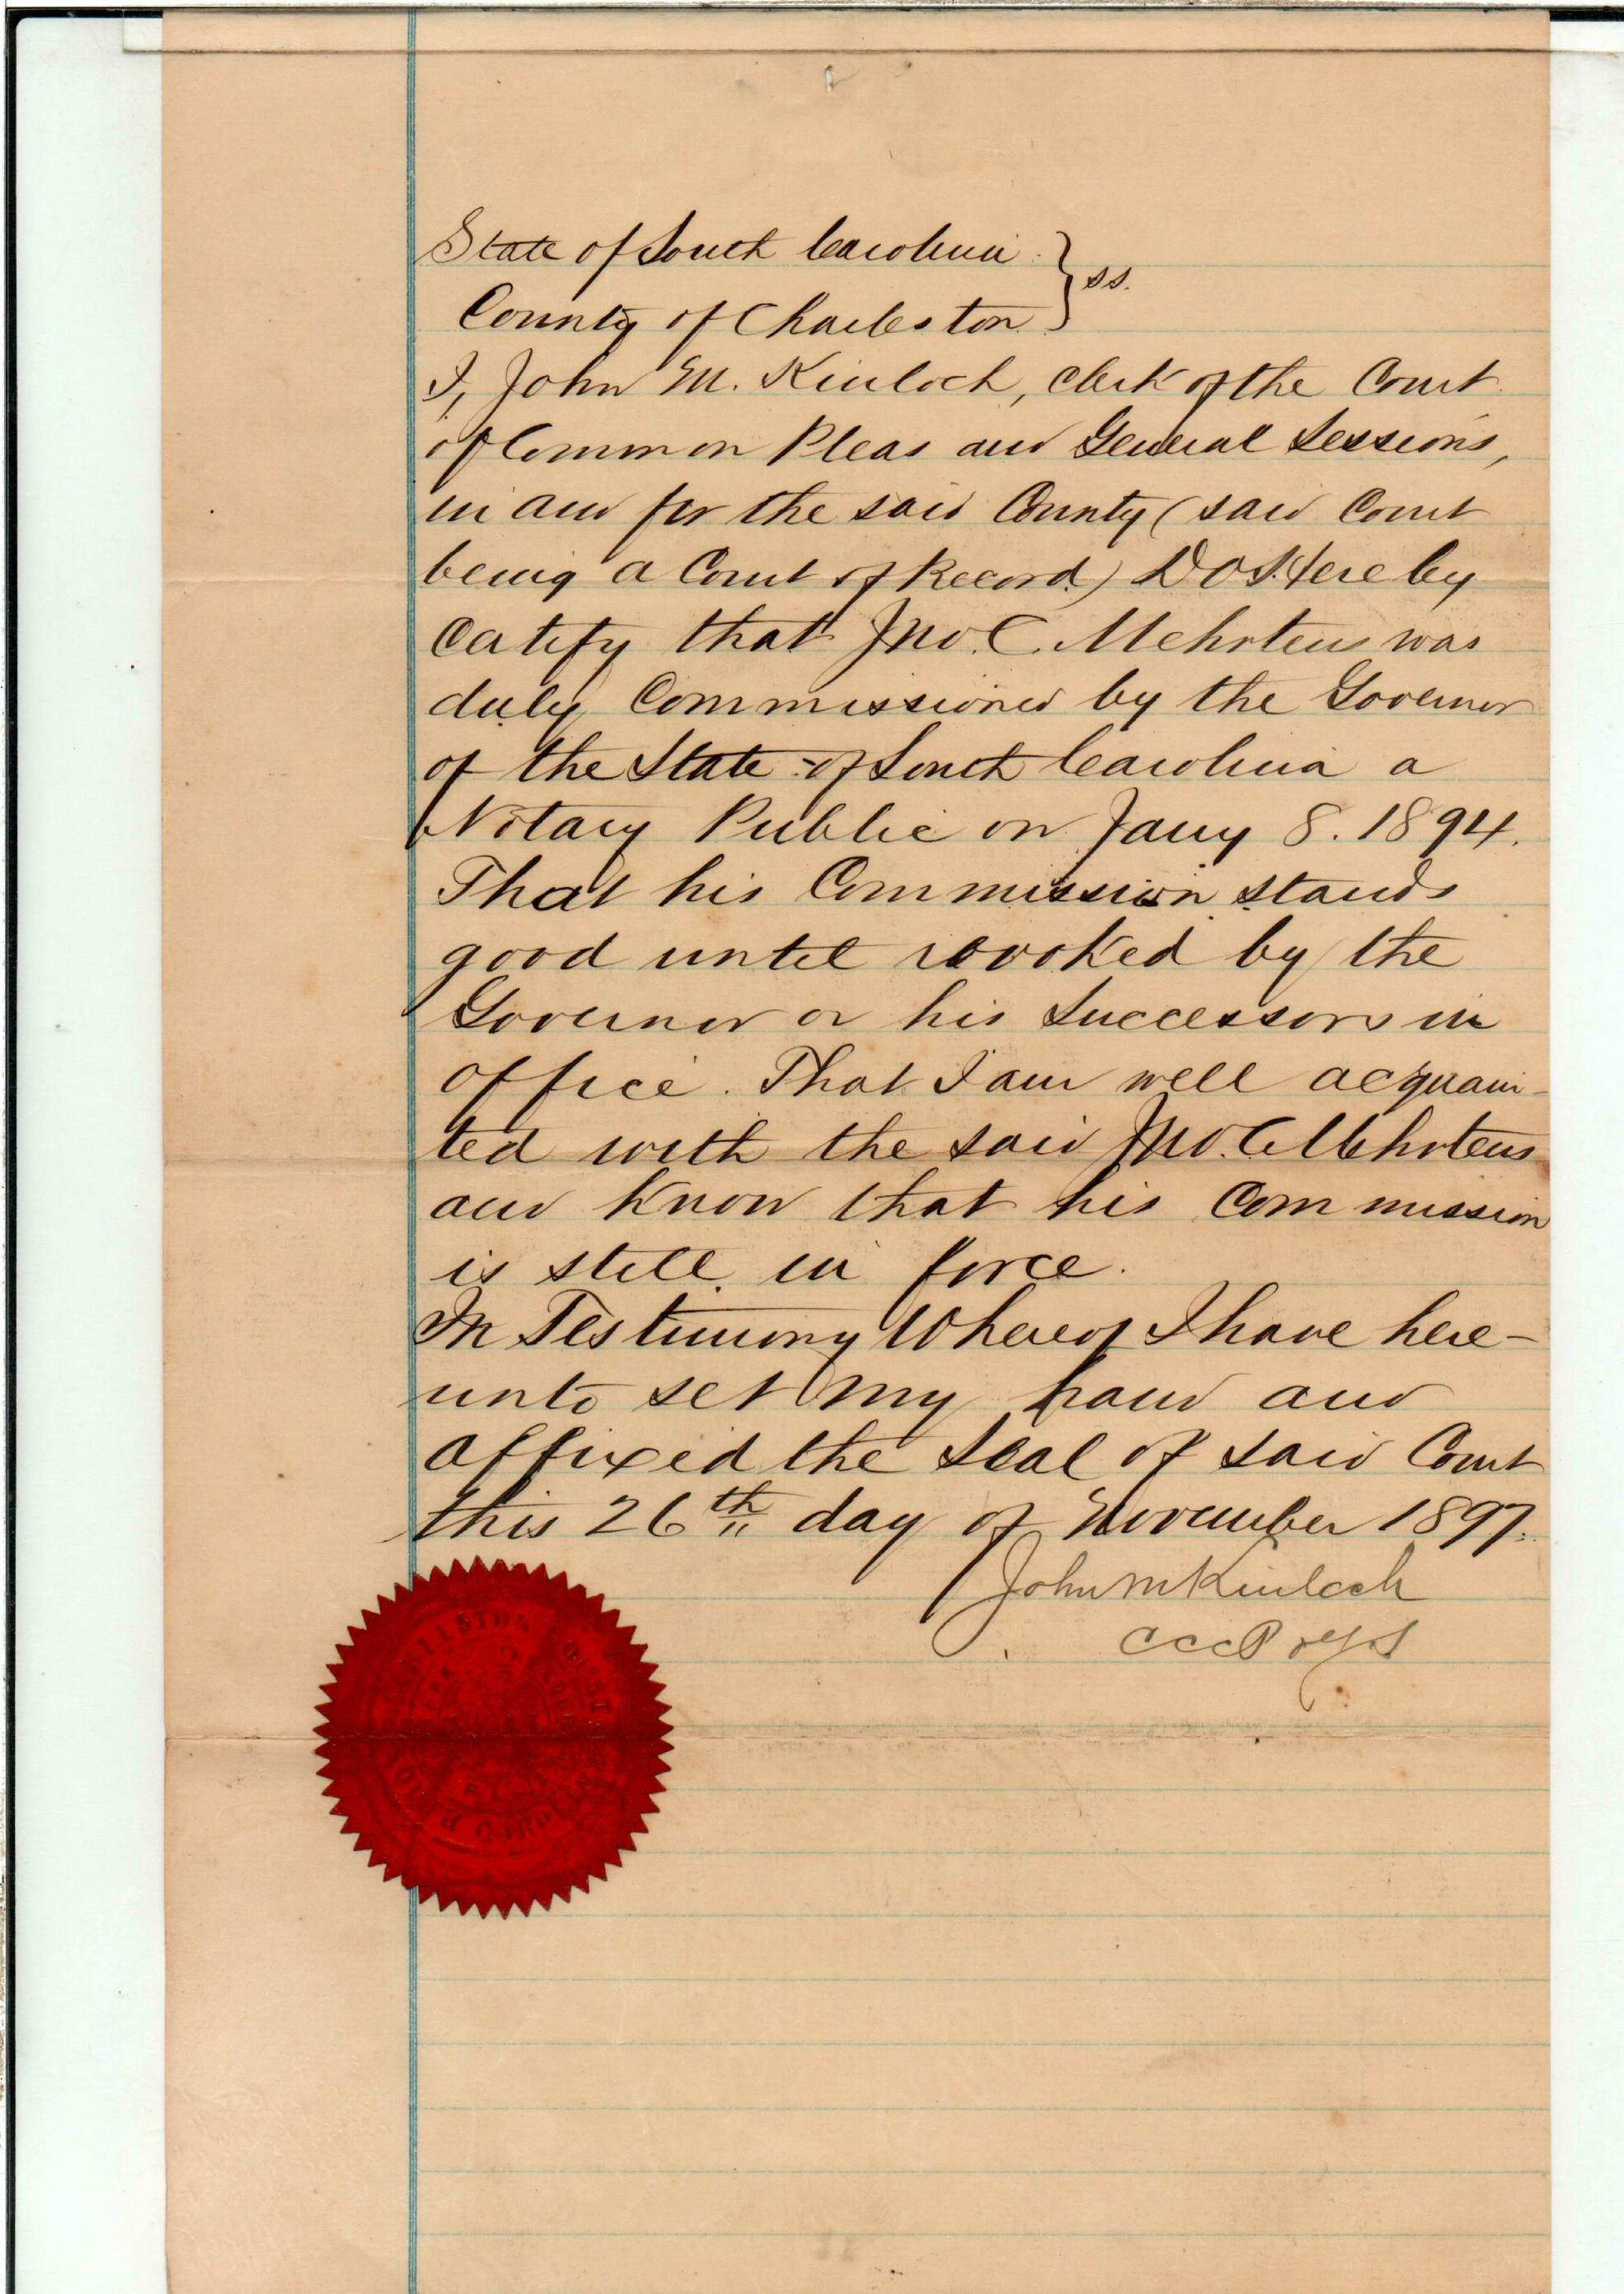 State of South Carolina } ss.
County of Charleston
I, John M. Kinloch, Clerk of the Court
of Common Pleas and General Sessions,
in and for the said County (said Court
being a Court of Record) Do Hereby
Certify that Jno. C. Mehrtens was
duly Commissioned by the Governor
of the State of South Carolina a
Notary Public on Jany 8. 1894.
That his Commission stands
good until revoked by the
Governor or his Successors in
office. That I am well acquain-
ted with the said Jno. C Mehrtens
and know that his Commission
is still in force.
In Testimony Whereof I have here-
unto set my hand and
affixed the Seal of said Court
this 26th day of November 1897.
John M Kinloch
CCCP & GS